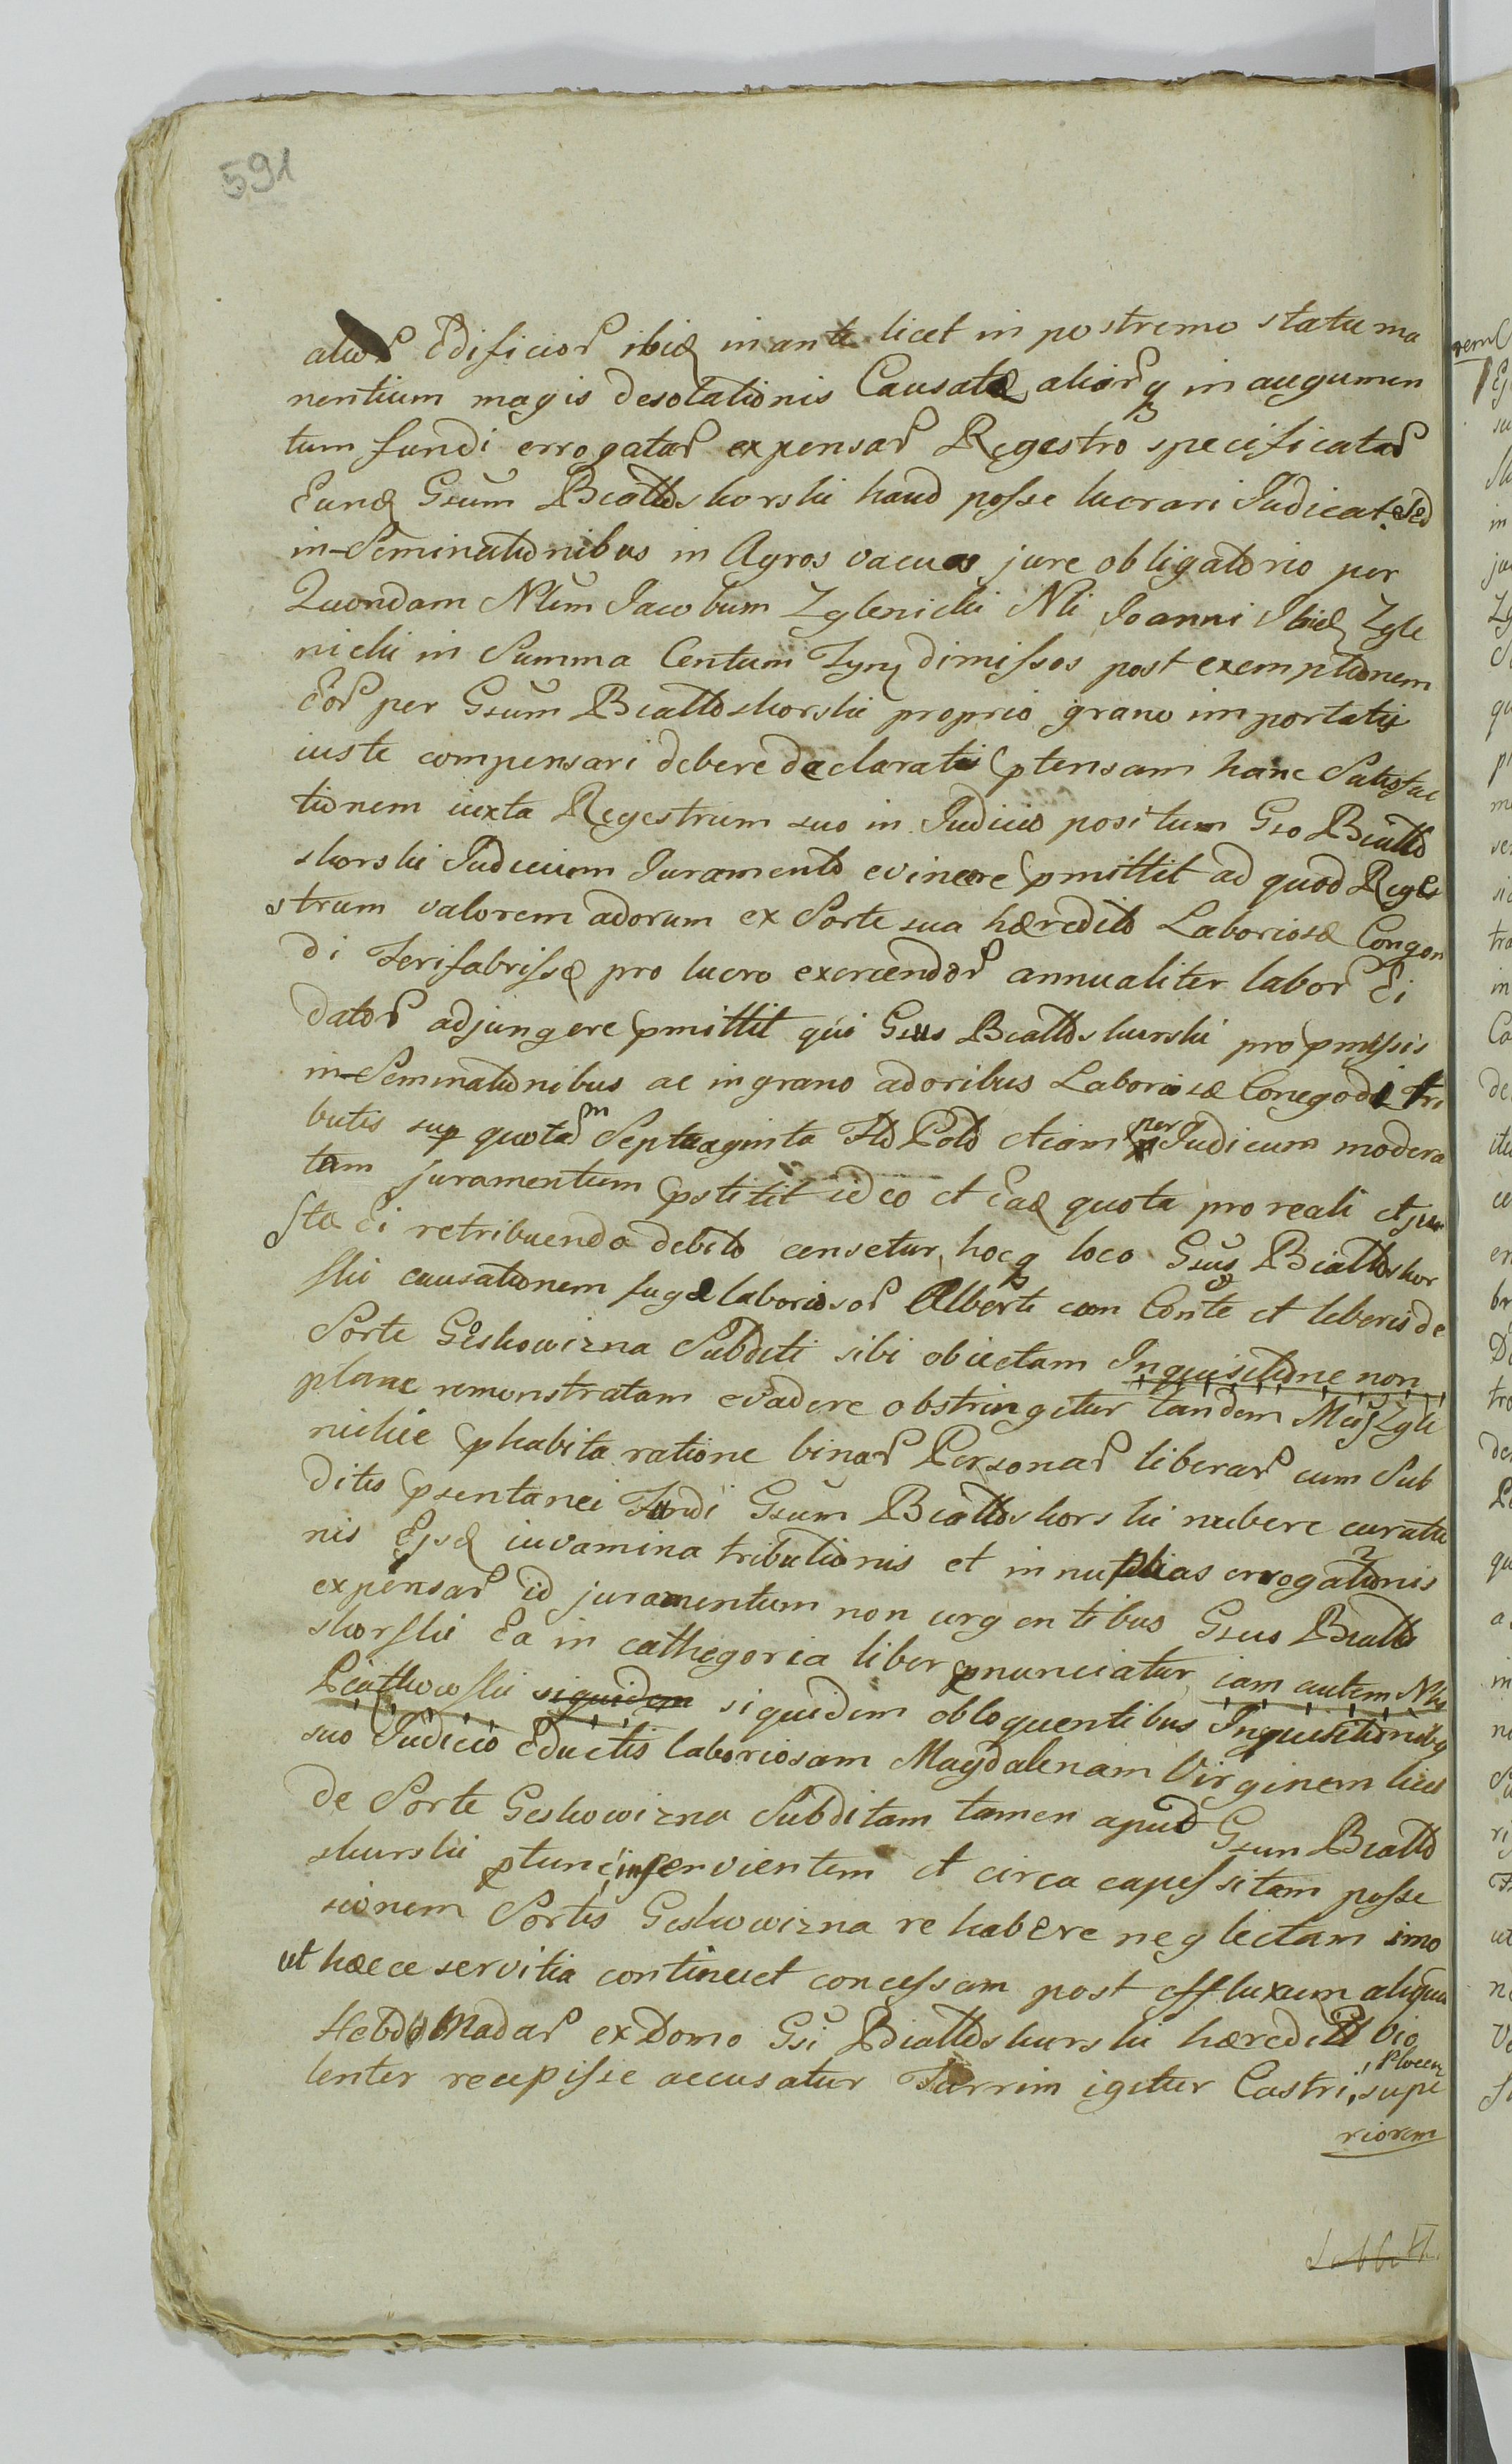 591
alior Edificior ibid inante licet in postremo statu ma
nentium magis desolationis Causatæ aliorq in augumen
tum fundi errogatar expensar Regestro specificatar
Eund Gsum Białłoskorski haud posse lucrari Judicat. Sed
in-Seminationibus in Agros vacuos jure obligatorio per
Quondam Nlem Jacobum Zglenicki Nli Joanni Ibid Zgle
nicki in Summa Centum Tyn dimissos post exemptionem
Eor per Gsum Białłoskorski proprio grano importatis
iuste compensari debere declaratis ptensam hanc Satisfac
tionem iuxta Regestrum suo in Judicio positum Gso Białło
skorski Judicium Juramento evincere pmittit ad quod Rege
strum valorem adorum ex Sorte sua hæredito Laboriosæ Congon
di Ferifabrissæ pro lucro exercendor annualiter labor Ei
dator adjungere pmittit qui Gsus Białłoskurski pro pmissis
in-Seminationibus ac in grano adoribus Laboriosæ Conegodi tri
butis sup quotam Septuaginta Flo Polo etiam per Judicium modera
tam juramentum pstitit ideo et Ead quota pro reali et ju
sto Ei retribuendo debito censetur, hocq loco Gsus Białłoskor
ski causationem fugæ laboriosor Alberti cum Conte et liberis de
Sorte Geskowizna Subditi sibi obiectam Inquisitione non
plane remonstratam evadere obstringitur tandem Mcis Zgle
nickie phabita ratione binar Personar liberar cum Sub
ditis psentanei Fundi Gsum Białłoskorski nubere curatu
nis Ejsd iuvamina tributionis et in nuptias errogationis
expensar id juramentum non urgentibus Gsus Białło
skorski Ea in cathegoria liber pnunciatur, iam autem Nlis
Piatkowski siquidem siquidem obloquentibus Inquisitionibq
suo Judicio Eductis laboriosam Magdalenam Virginem licet
de Sorte Geskowizna Subditam tamen apud Gsum Białło
skurski ptunc inservientem et circa capessitam posse
sionem Sortis Geskowizna rehabere neglectam imo
ut hæcce servitia continuet concessam post effluxum aliquot
Hebdomadar ex Domo Gsi Białłoskurski hæredito vio
lenter recepisse accusatur Turrim igitur Castri, Plocen supe
riorem